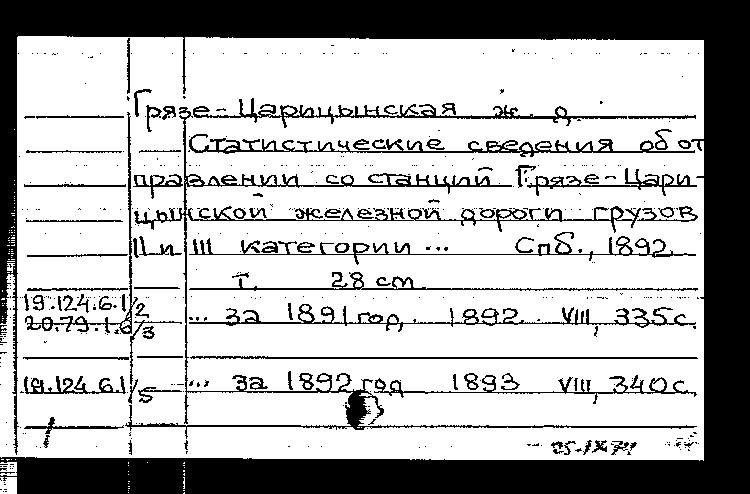 Грязе-Царицынская ж. д.
Статистические сведения об от
правлении со станций Грязе-Цари-
цынской железной дороги грузов
II и III категории ... Спб., 1892
т. 28 см.
19.124.6.1/2
20.79.1.6/3 ... за 1891 год, 1892. VIII, 335 с.
19.124.6.1/5 ... за 1892 год 1893 VIII, 340 с.
25-IX-74